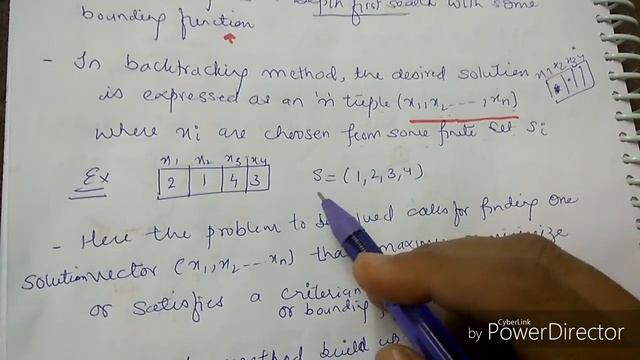 depth first search with some
bounding function
- In backtracking method, the desired solution
is expressed as an 'n' tuple (x1, x2 ----, xn)
where xi are choosen from some finite set Si
x1 x2 x3 x4
Ex 2 1 4 3 S = (1, 2, 3, 4)
- Here the problem to solved calls for finding one
solution vector (x1, x2 ---- xn) that
or satisfies a criterian
or bounding
method build up
CyberLink
by PowerDirector